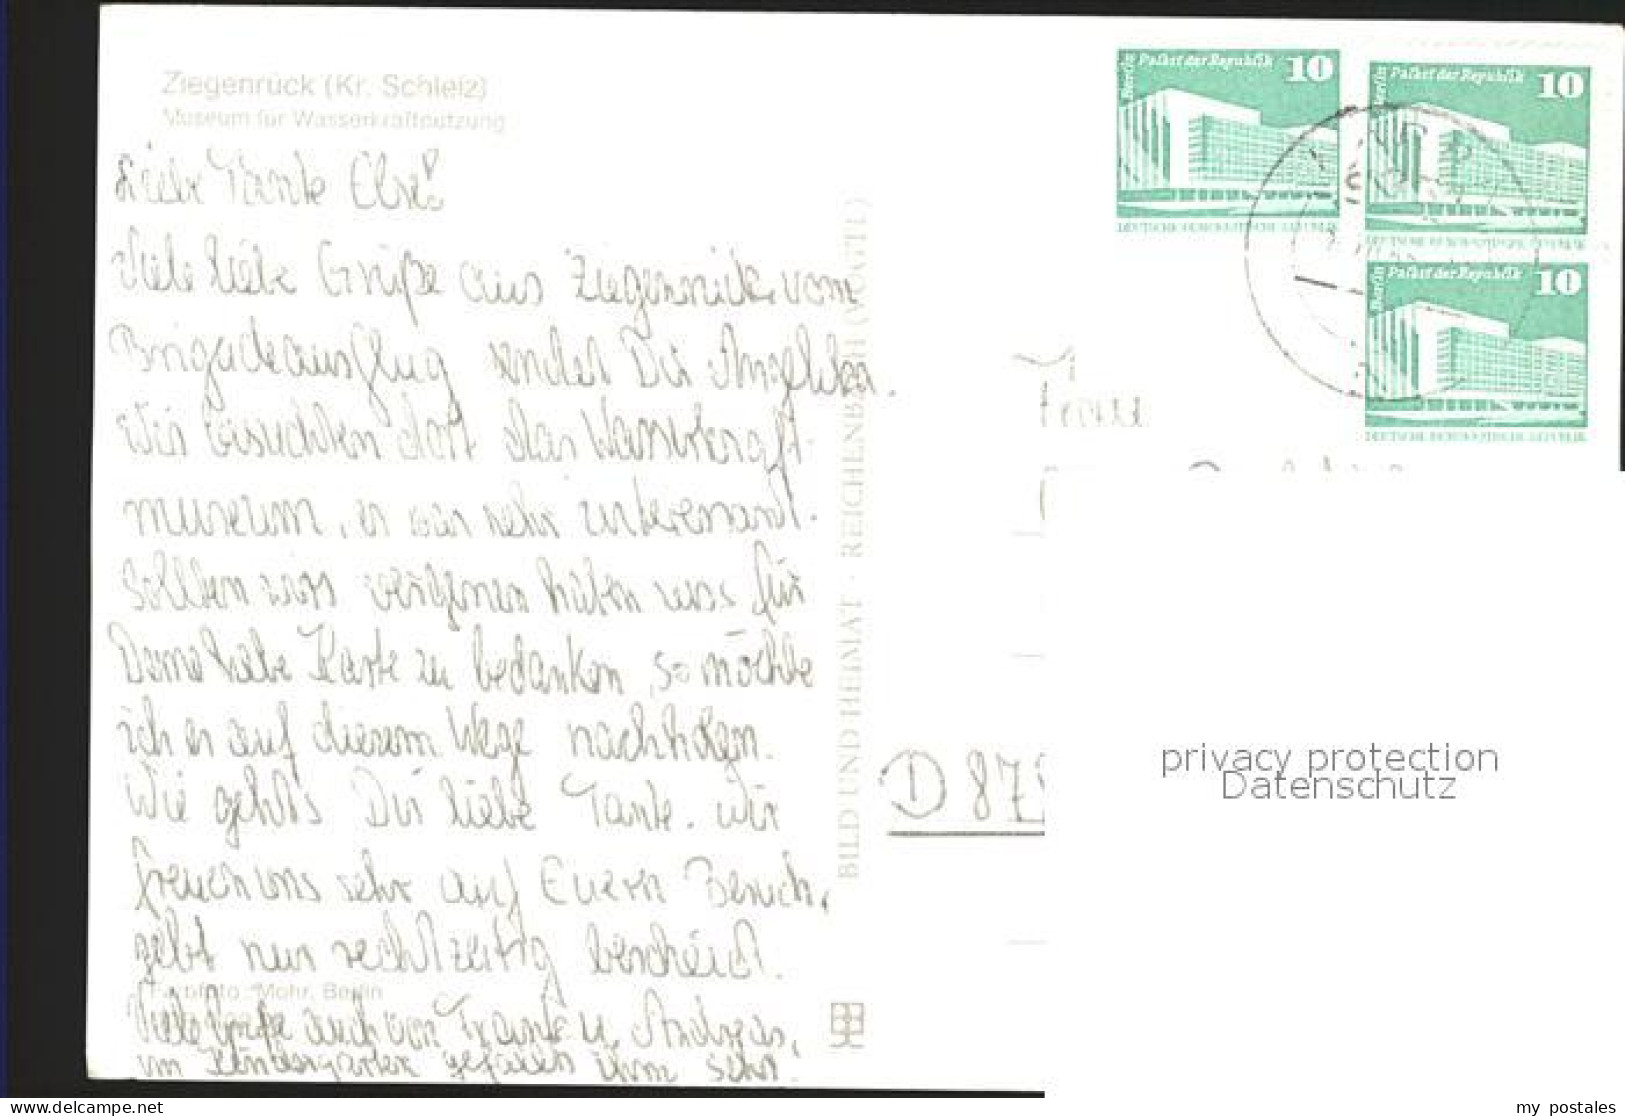 Ziegenrück (Kr. Schleiz)
Museum für Wasserkraftnutzung
Liebe Tante Else!
Viele liebe Grüße aus Ziegenrück, vom
Brigadeausflug sendet Dir Angelika.
Wir besuchten dort das Wasserkraft-
museum, es war sehr interessant.
Sollten wir vergessen haben uns für
Deine liebe Karte zu bedanken, so möchte
ich es auf diesem Wege nachholen.
Wie geht's Dir liebe Tante. Wir
freuen uns sehr auf Euern Besuch,
gebt nur rechtzeitig bescheid.
Farbfoto: Mohr, Berlin
Viele Grüße auch von Frank u. Andreas,
im Kindergarten gefällt ihm sehr.
BILD UND HEIMAT · REICHENBACH (VOGTL)
Berlin Palast der Republik 10
DEUTSCHE DEMOKRATISCHE REPUBLIK
Berlin Palast der Republik 10
DEUTSCHE DEMOKRATISCHE REPUBLIK
Berlin Palast der Republik 10
DEUTSCHE DEMOKRATISCHE REPUBLIK
Frau
D 87
privacy protection
Datenschutz
https://www.delcampe.net
my_postales